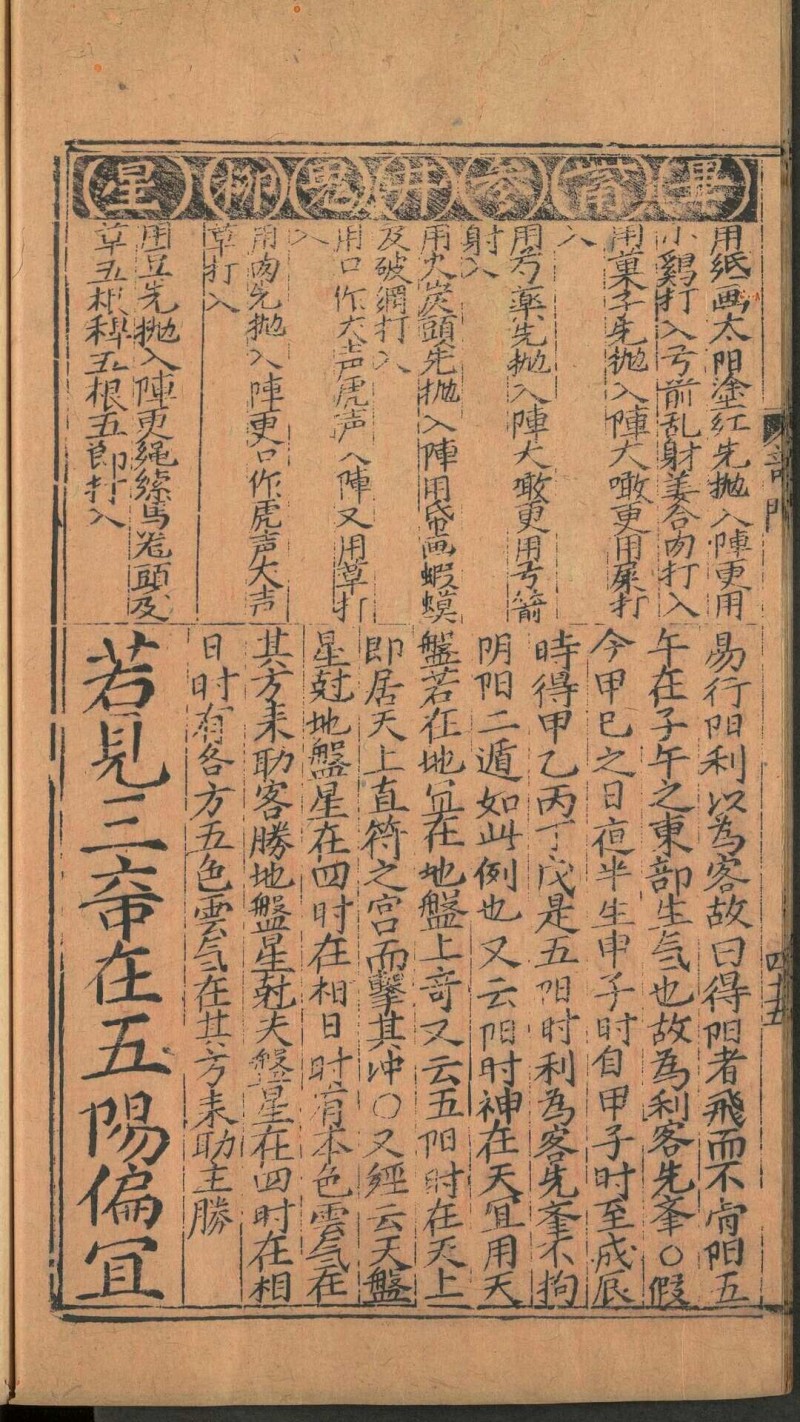 畢觜參井鬼柳星
用紙画太阳塗红先抛入陣更用
小鷄打入弓前乱射姜合肉打入
用菓子先抛入陣大噉更用屎打
入
用芍藥先抛入陣大噉更用弓箭
射入
用火炭頭先抛入陣用帋画蝦蟆
及破網打入
用口作大声虎声入陣又用草打
入
用肉先抛入陣更口作虎声大声
草打入
用豆先抛入陣更绳縧馬卷頭及
草五根稗五根五郎打入
易行阳利以為客故曰得阳者飛而不宵阳五
午在子午之東部生气也故為利客先夆○假
今甲巳之日夜半生甲子时自甲子时至戊辰
時得甲乙丙丁戊是五阳时利為客先夆不拘
阴阳二遁如此例也又云阳时神在天宜用天
盤若在地宜在地盤上奇又云五阳时在天上
即居天上直符之宫而擊其冲○又經云天盤
星尅地盤星在四时在相日时有本色雲气在
其方来助客勝地盤星尅天盤星在四时在相
日时有各方五色雲气在其方来助主勝
若見三竒在五陽偏宜
四十五